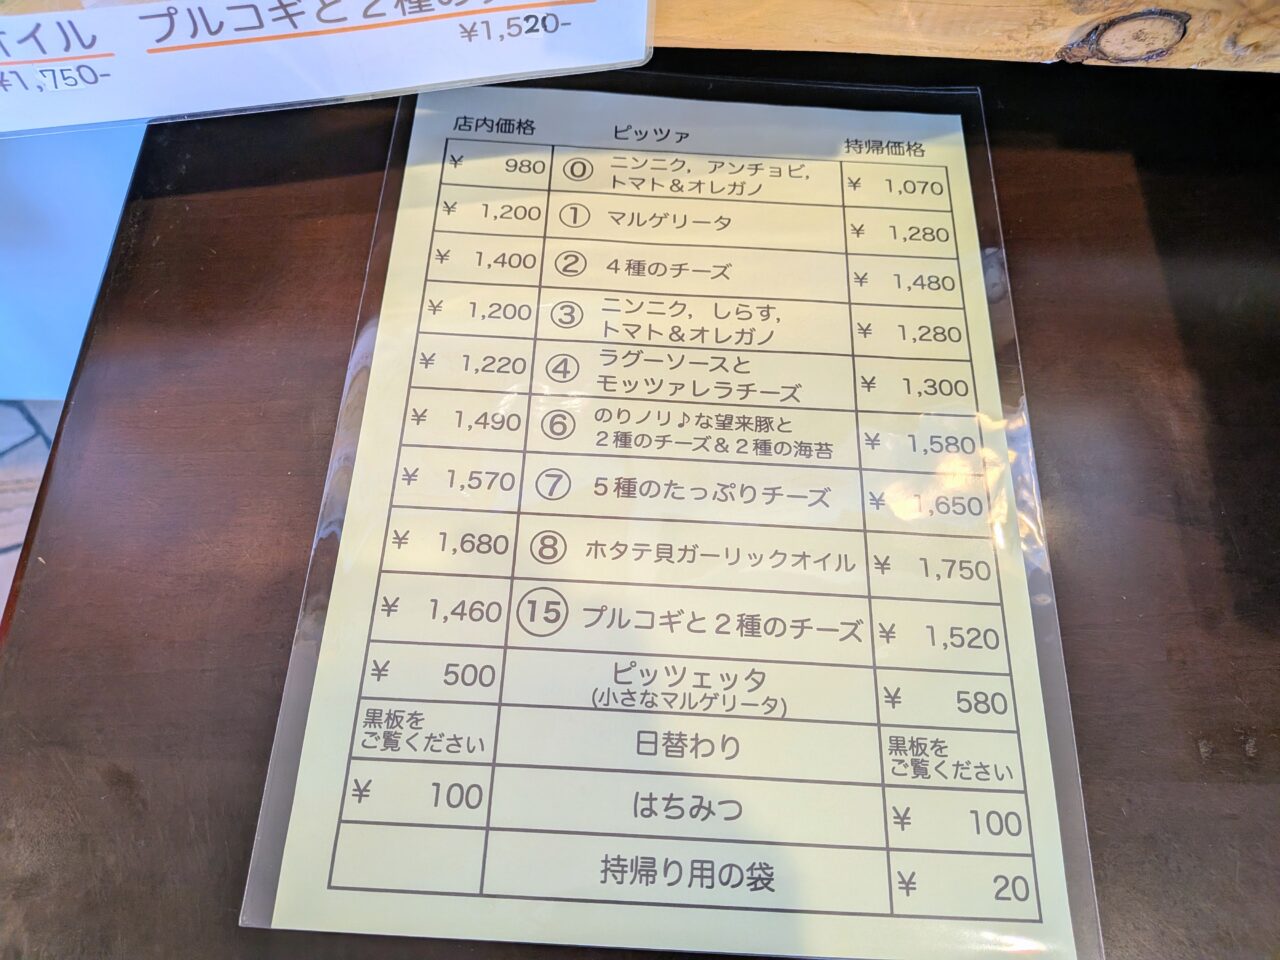 オイル プルコギと2種の
¥1,750-
¥1,520-
店内価格 ピッツァ 持帰価格
¥ 980 ⓪ ニンニク, アンチョビ, ¥ 1,070
トマト&オレガノ
¥ 1,200 ① マルゲリータ ¥ 1,280
¥ 1,400 ② 4種のチーズ ¥ 1,480
¥ 1,200 ③ ニンニク, しらす, ¥ 1,280
トマト&オレガノ
¥ 1,220 ④ ラグーソースと ¥ 1,300
モッツァレラチーズ
¥ 1,490 ⑥ のりノリ♪な望来豚と ¥ 1,580
2種のチーズ&2種の海苔
¥ 1,570 ⑦ 5種のたっぷりチーズ ¥ 1,650
¥ 1,680 ⑧ ホタテ貝ガーリックオイル ¥ 1,750
¥ 1,460 ⑮ プルコギと2種のチーズ ¥ 1,520
¥ 500 ピッツェッタ ¥ 580
(小さなマルゲリータ)
黒板を 日替わり 黒板を
ご覧ください ご覧ください
¥ 100 はちみつ ¥ 100
持帰り用の袋 ¥ 20